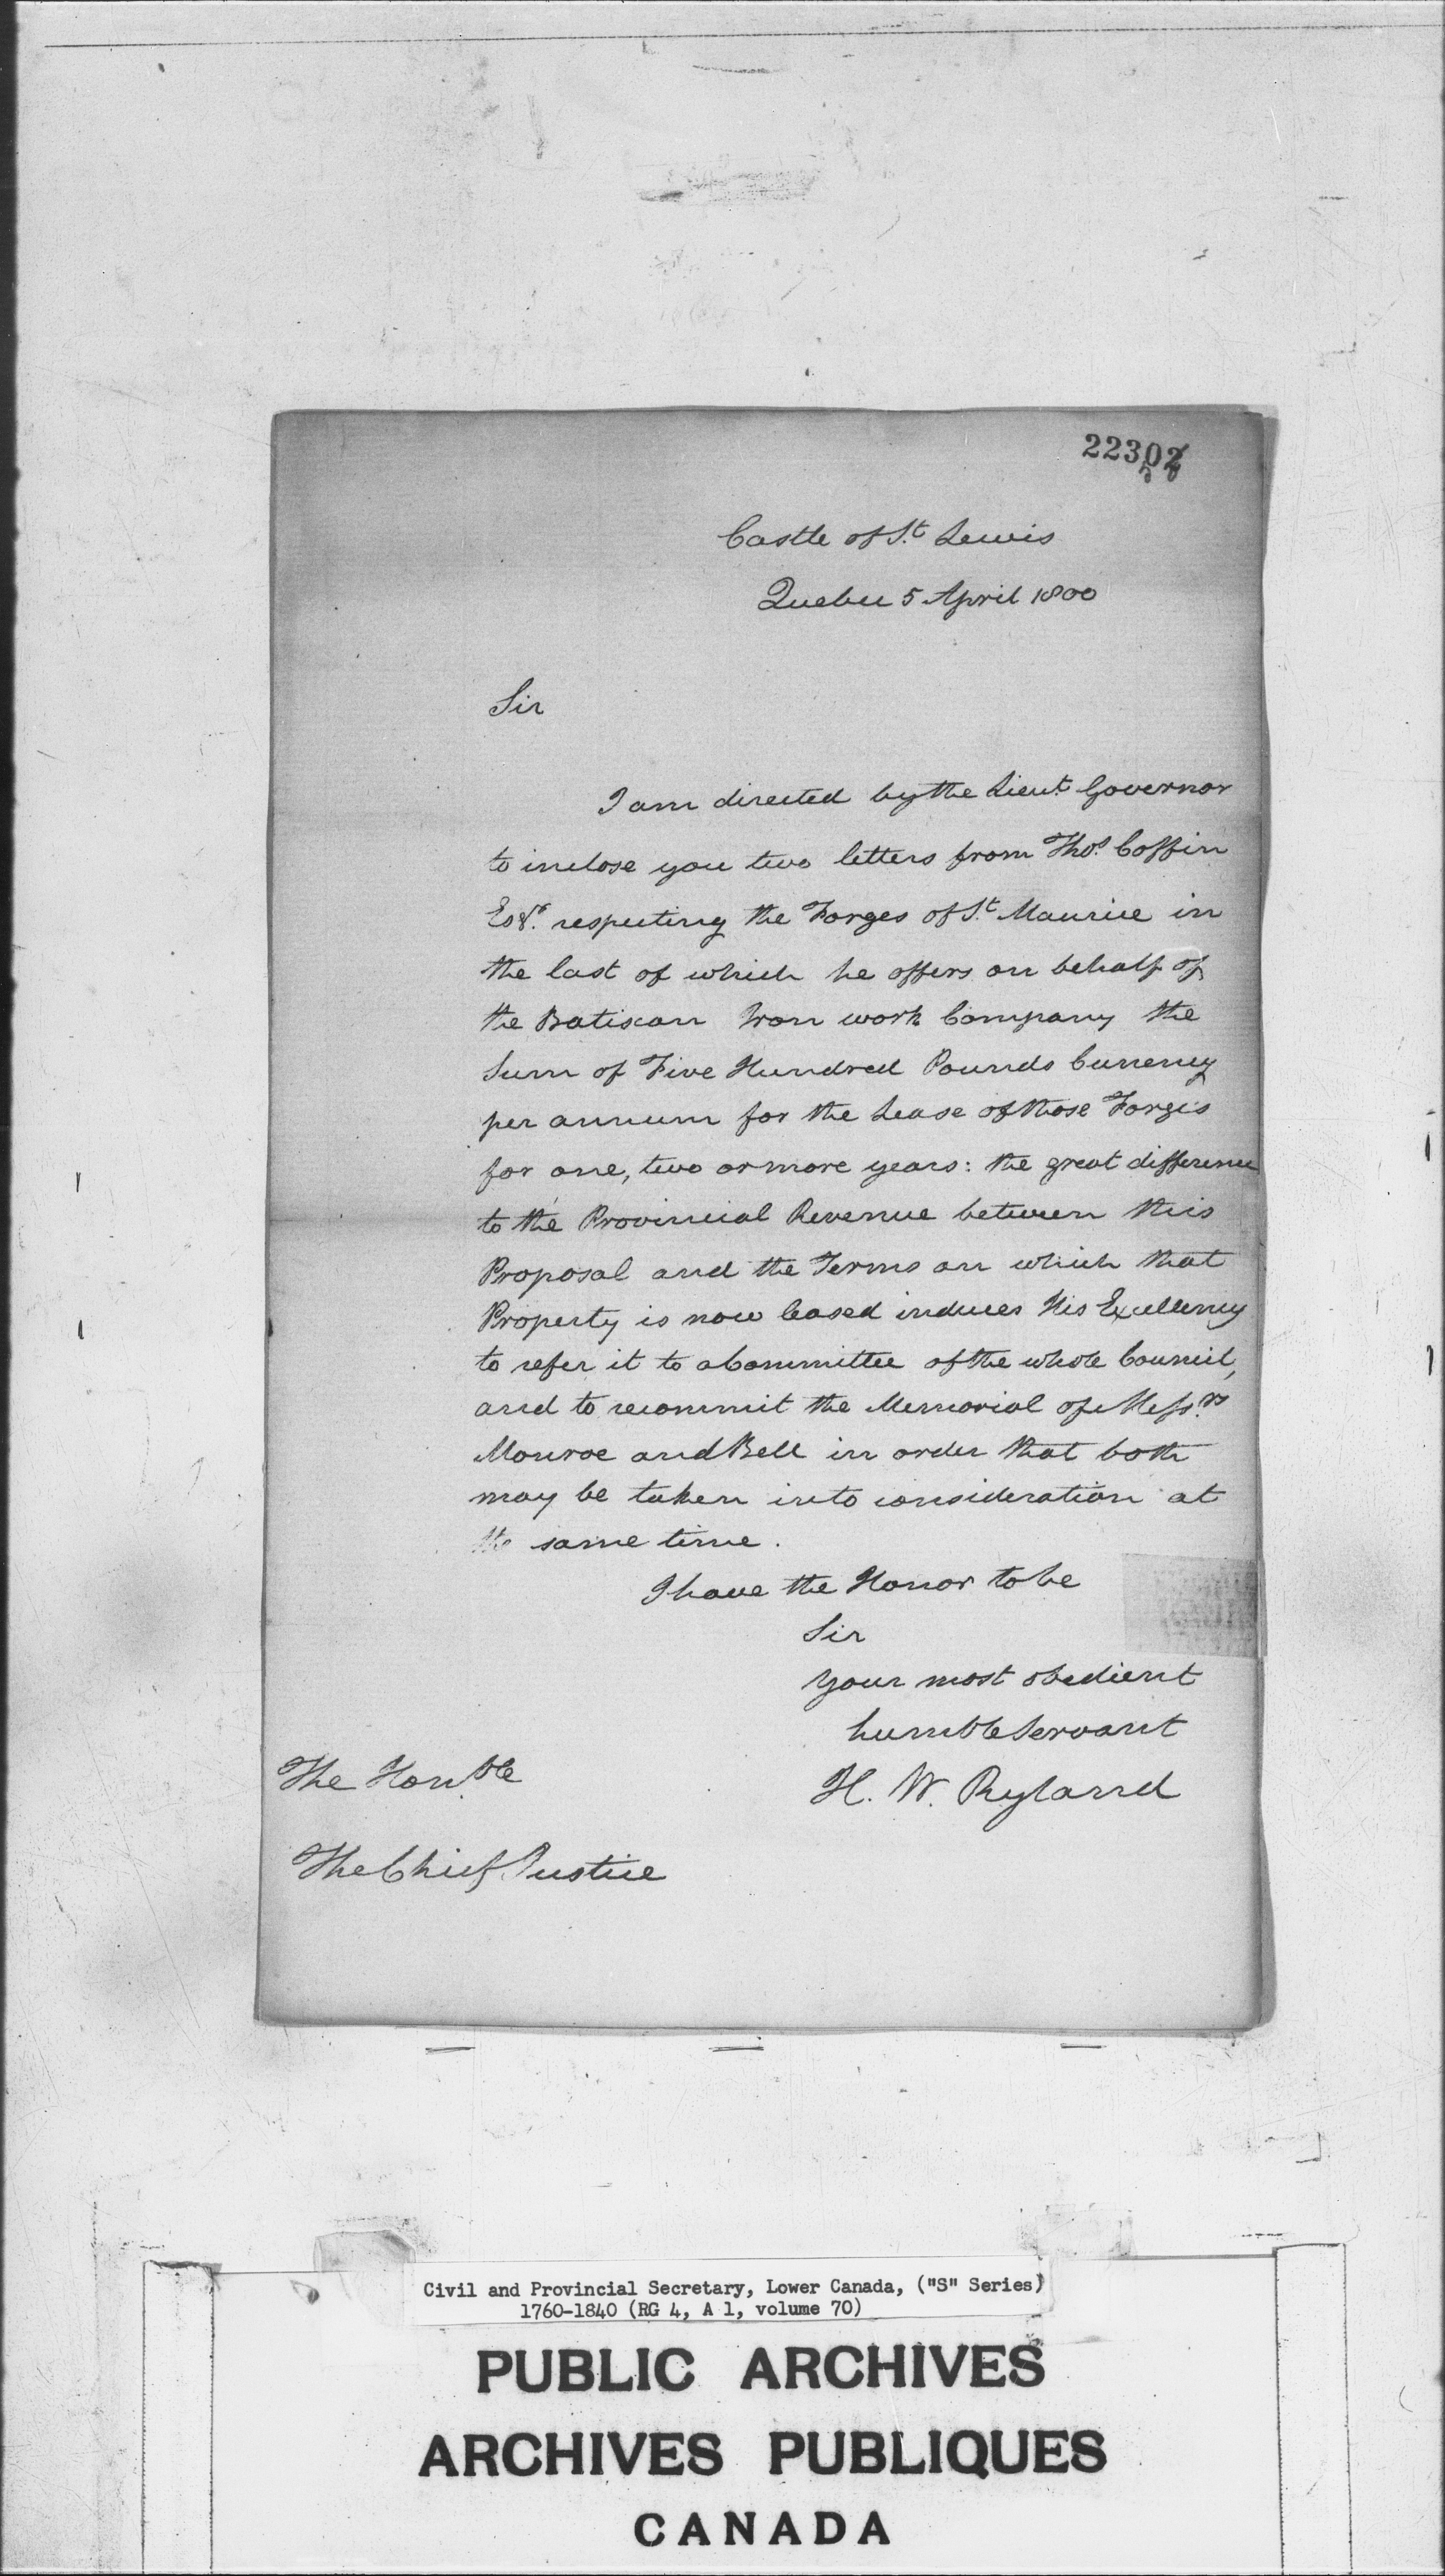 22302
Castle of St. Lewis
Quebec 5 April 1800
Sir
I am directed by the Lieut. Governor
to inclose you two letters from Thos. Coffin
Esqr. respecting the Forges of St. Maurice in
the last of which he offers on behalf of
the Batiscan Iron work Company the
Sum of Five Hundred Pounds Currency
per annum for the Lease of those Forges
for one, two or more years: the great difference
to the Provincial Revenue between this
Proposal and the Terms on which that
Property is now leased induces His Excellency
to refer it to a Committee of the whole Council,
and to recommit the Memorial of Messrs.
Monroe and Bell in order that both
may be taken into consideration at
the same time.
I have the Honor to be
Sir
your most obedient
humble Servant
H. W. Ryland
The Honble.
The Chief Justice
Civil and Provincial Secretary, Lower Canada, ("S" Series)
1760-1840 (RG 4, A 1, volume 70)
PUBLIC ARCHIVES
ARCHIVES PUBLIQUES
CANADA